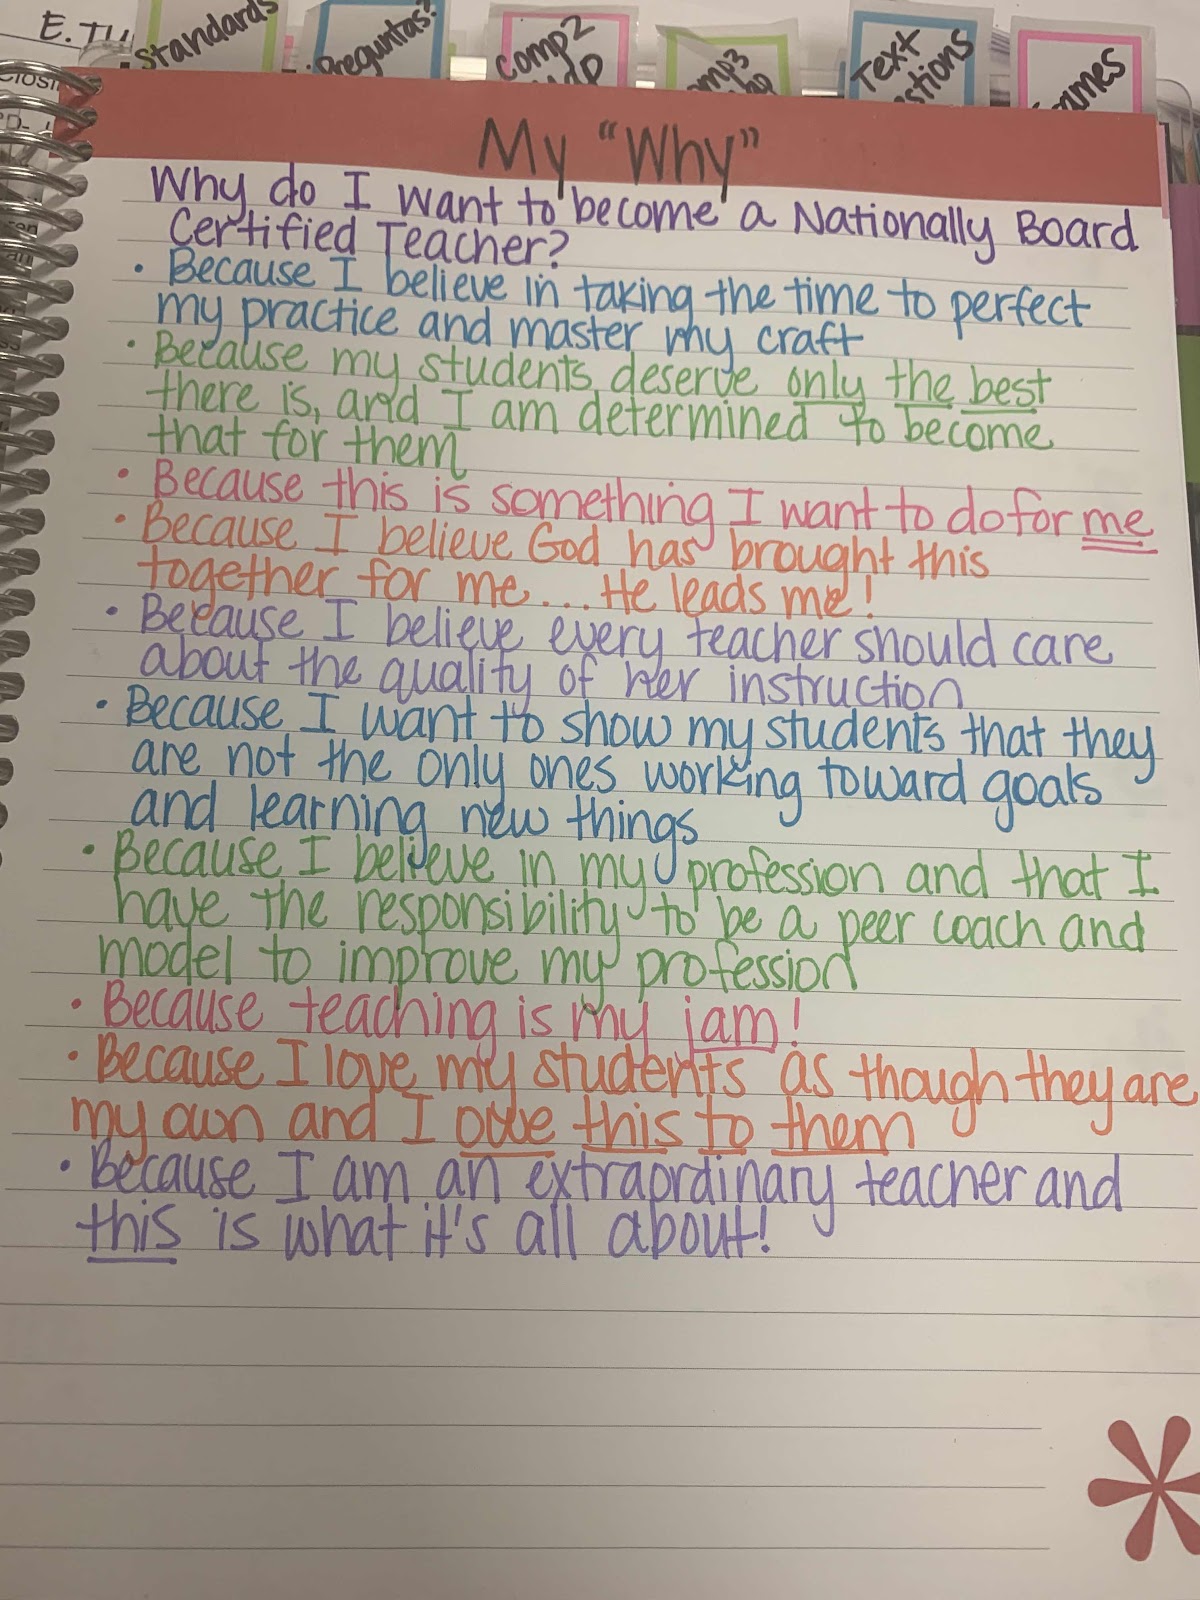 E. TU
Standards
Preguntas?
Comp2
Text
My "Why"
Why do I want to become a Nationally Board
Certified Teacher?
• Because I believe in taking the time to perfect
my practice and master my craft
• Because my students deserve only the best
there is, and I am determined to become
that for them
• Because this is something I want to do for me
• Because I believe God has brought this
together for me... He leads me!
• Because I believe every teacher should care
about the quality of her instruction
• Because I want to show my students that they
are not the only ones working toward goals
and learning new things
• Because I believe in my profession and that I
have the responsibility to be a peer coach and
model to improve my profession
• Because teaching is my jam!
• Because I love my students as though they are
my own and I owe this to them
• Because I am an extraordinary teacher and
this is what it's all about!